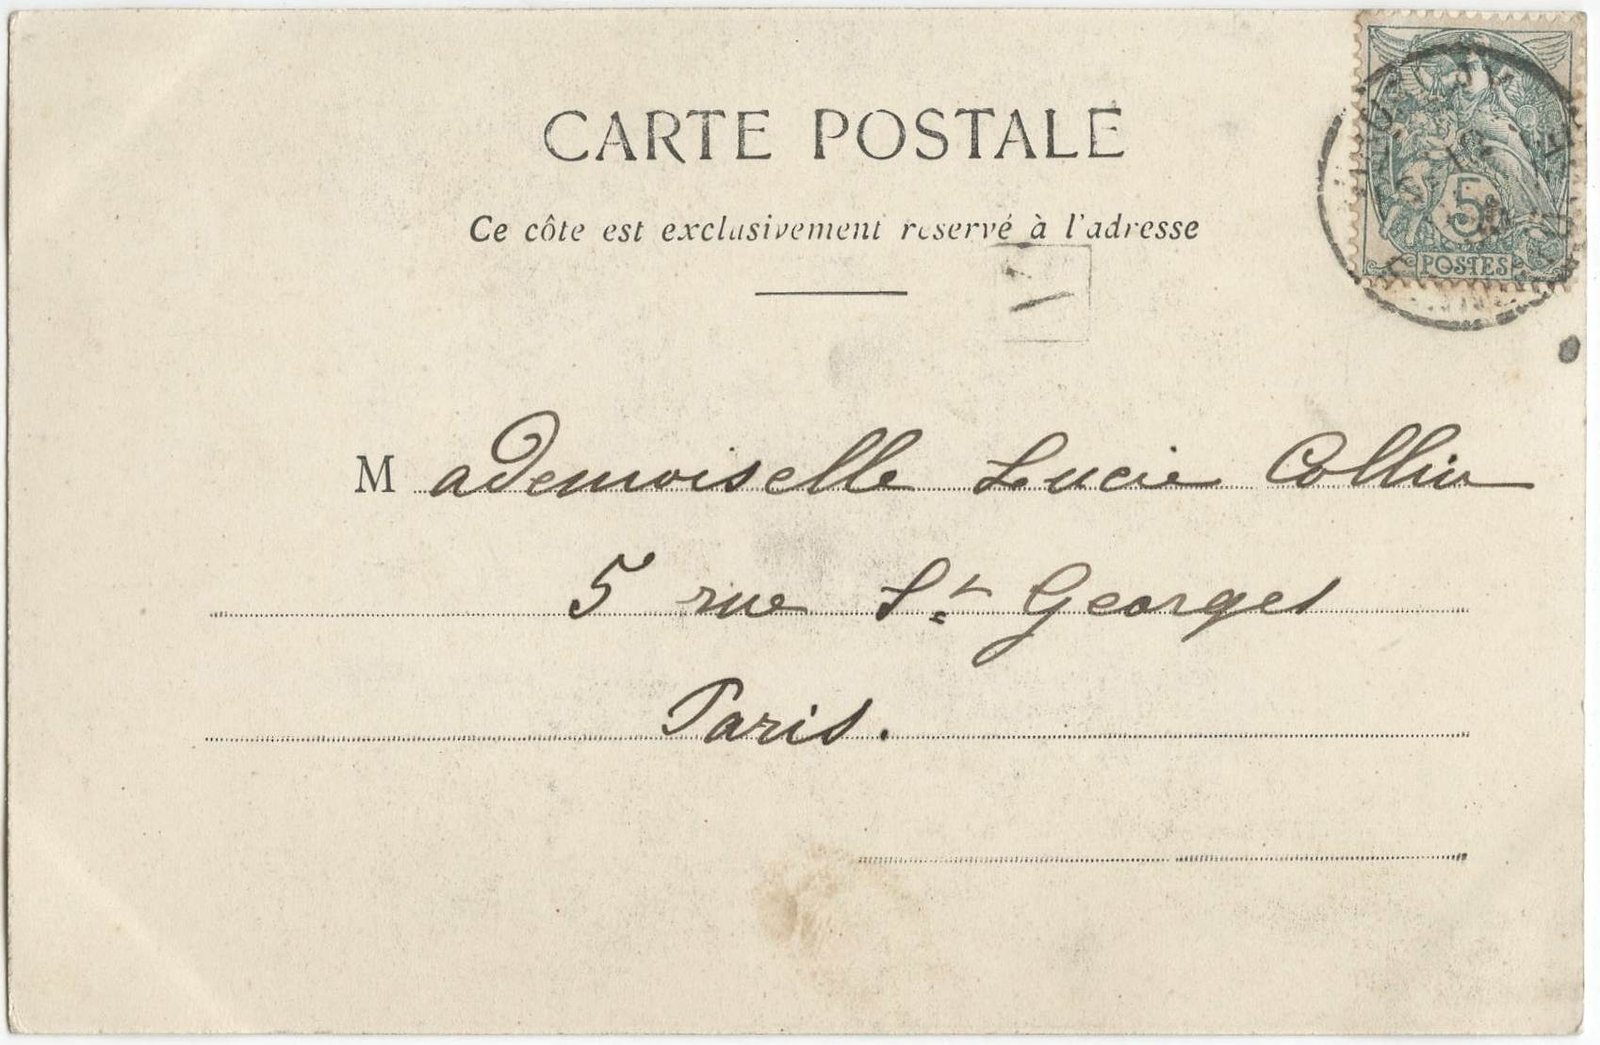 CARTE POSTALE
Ce côte est exclusivement reservé à l'adresse
5
POSTES
Mademoiselle Lucie Collin
5 rue St Georges
Paris.